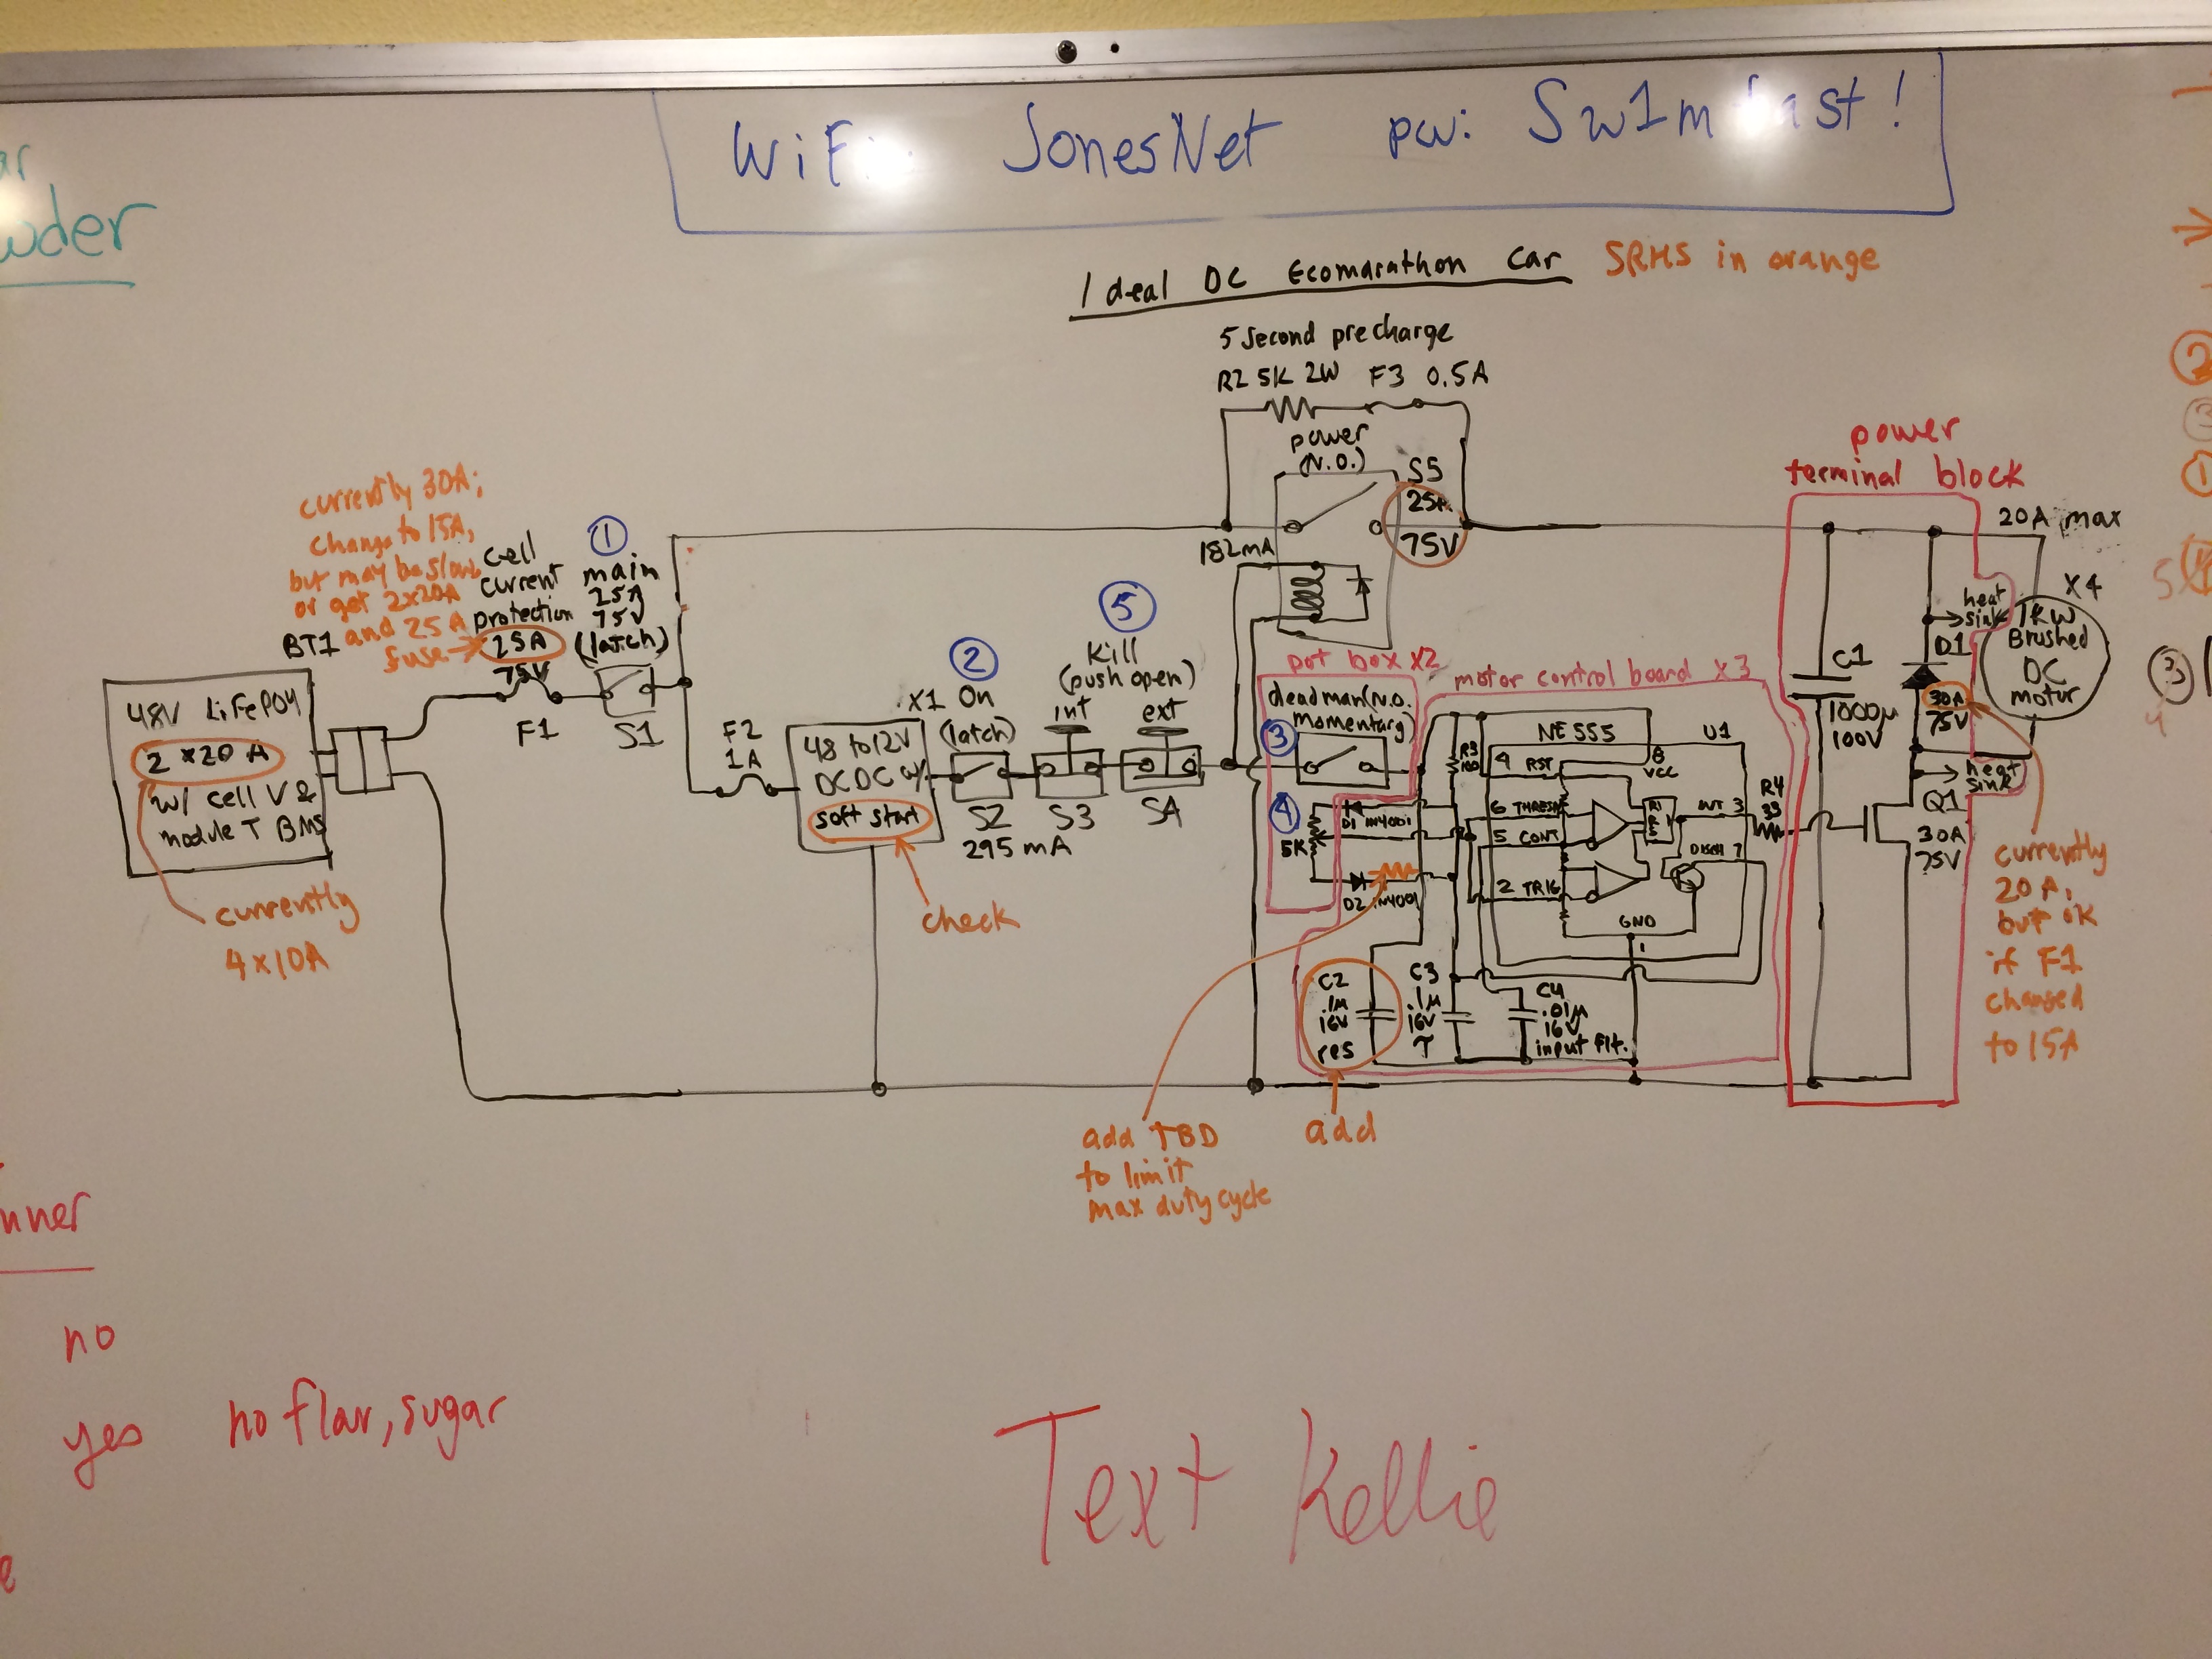 WiFi JonesNet pw: Sw1m fast!
wder
Ideal DC Ecomarathon Car
SRHS in orange
5 Second precharge
R2 5K 2W F3 0.5A
power
(N.O.)
S5
25A
75V
182mA
power
terminal block
20A max
X4
1KW
Brushed
DC
motor
heat
sink
D1
30A
75V
heat
sink
Q1
30A
75V
C1
1000µ
100V
currently
20A,
but ok
if F1
changed
to 15A
currently 30A;
change to 15A,
but may be slow,
or get 2x20A
and 25A
fuse
cell
current
protection
25A
75V
F1
1
main
25A
75V
(latch)
S1
BT1
48V LiFePO4
2 x 20 A
w/ cell V &
module T BMS
currently
4x10A
F2
1A
X1
48 to 12V
DCDC w/
soft start
check
2
On
(latch)
S2
295 mA
5
Kill
(push open)
int
ext
S3
S4
pot box x2
deadman (N.O.
momentary)
3
4
5K
D1 1N4001
D2 1N4001
motor control board x3
R3
NE555
U1
4 RST
8
VCC
6 THRESH
5 CONT
2 TRIG
OUT 3
DISCH 7
GND
1
R4
33
C2
.1µ
16V
res
C3
.1µ
16V
T
C4
.01µ
16V
input Flt.
add TBD
to limit
max duty cycle
add
no
yes
no flar, sugar
Text Kellie
2
3
1
3